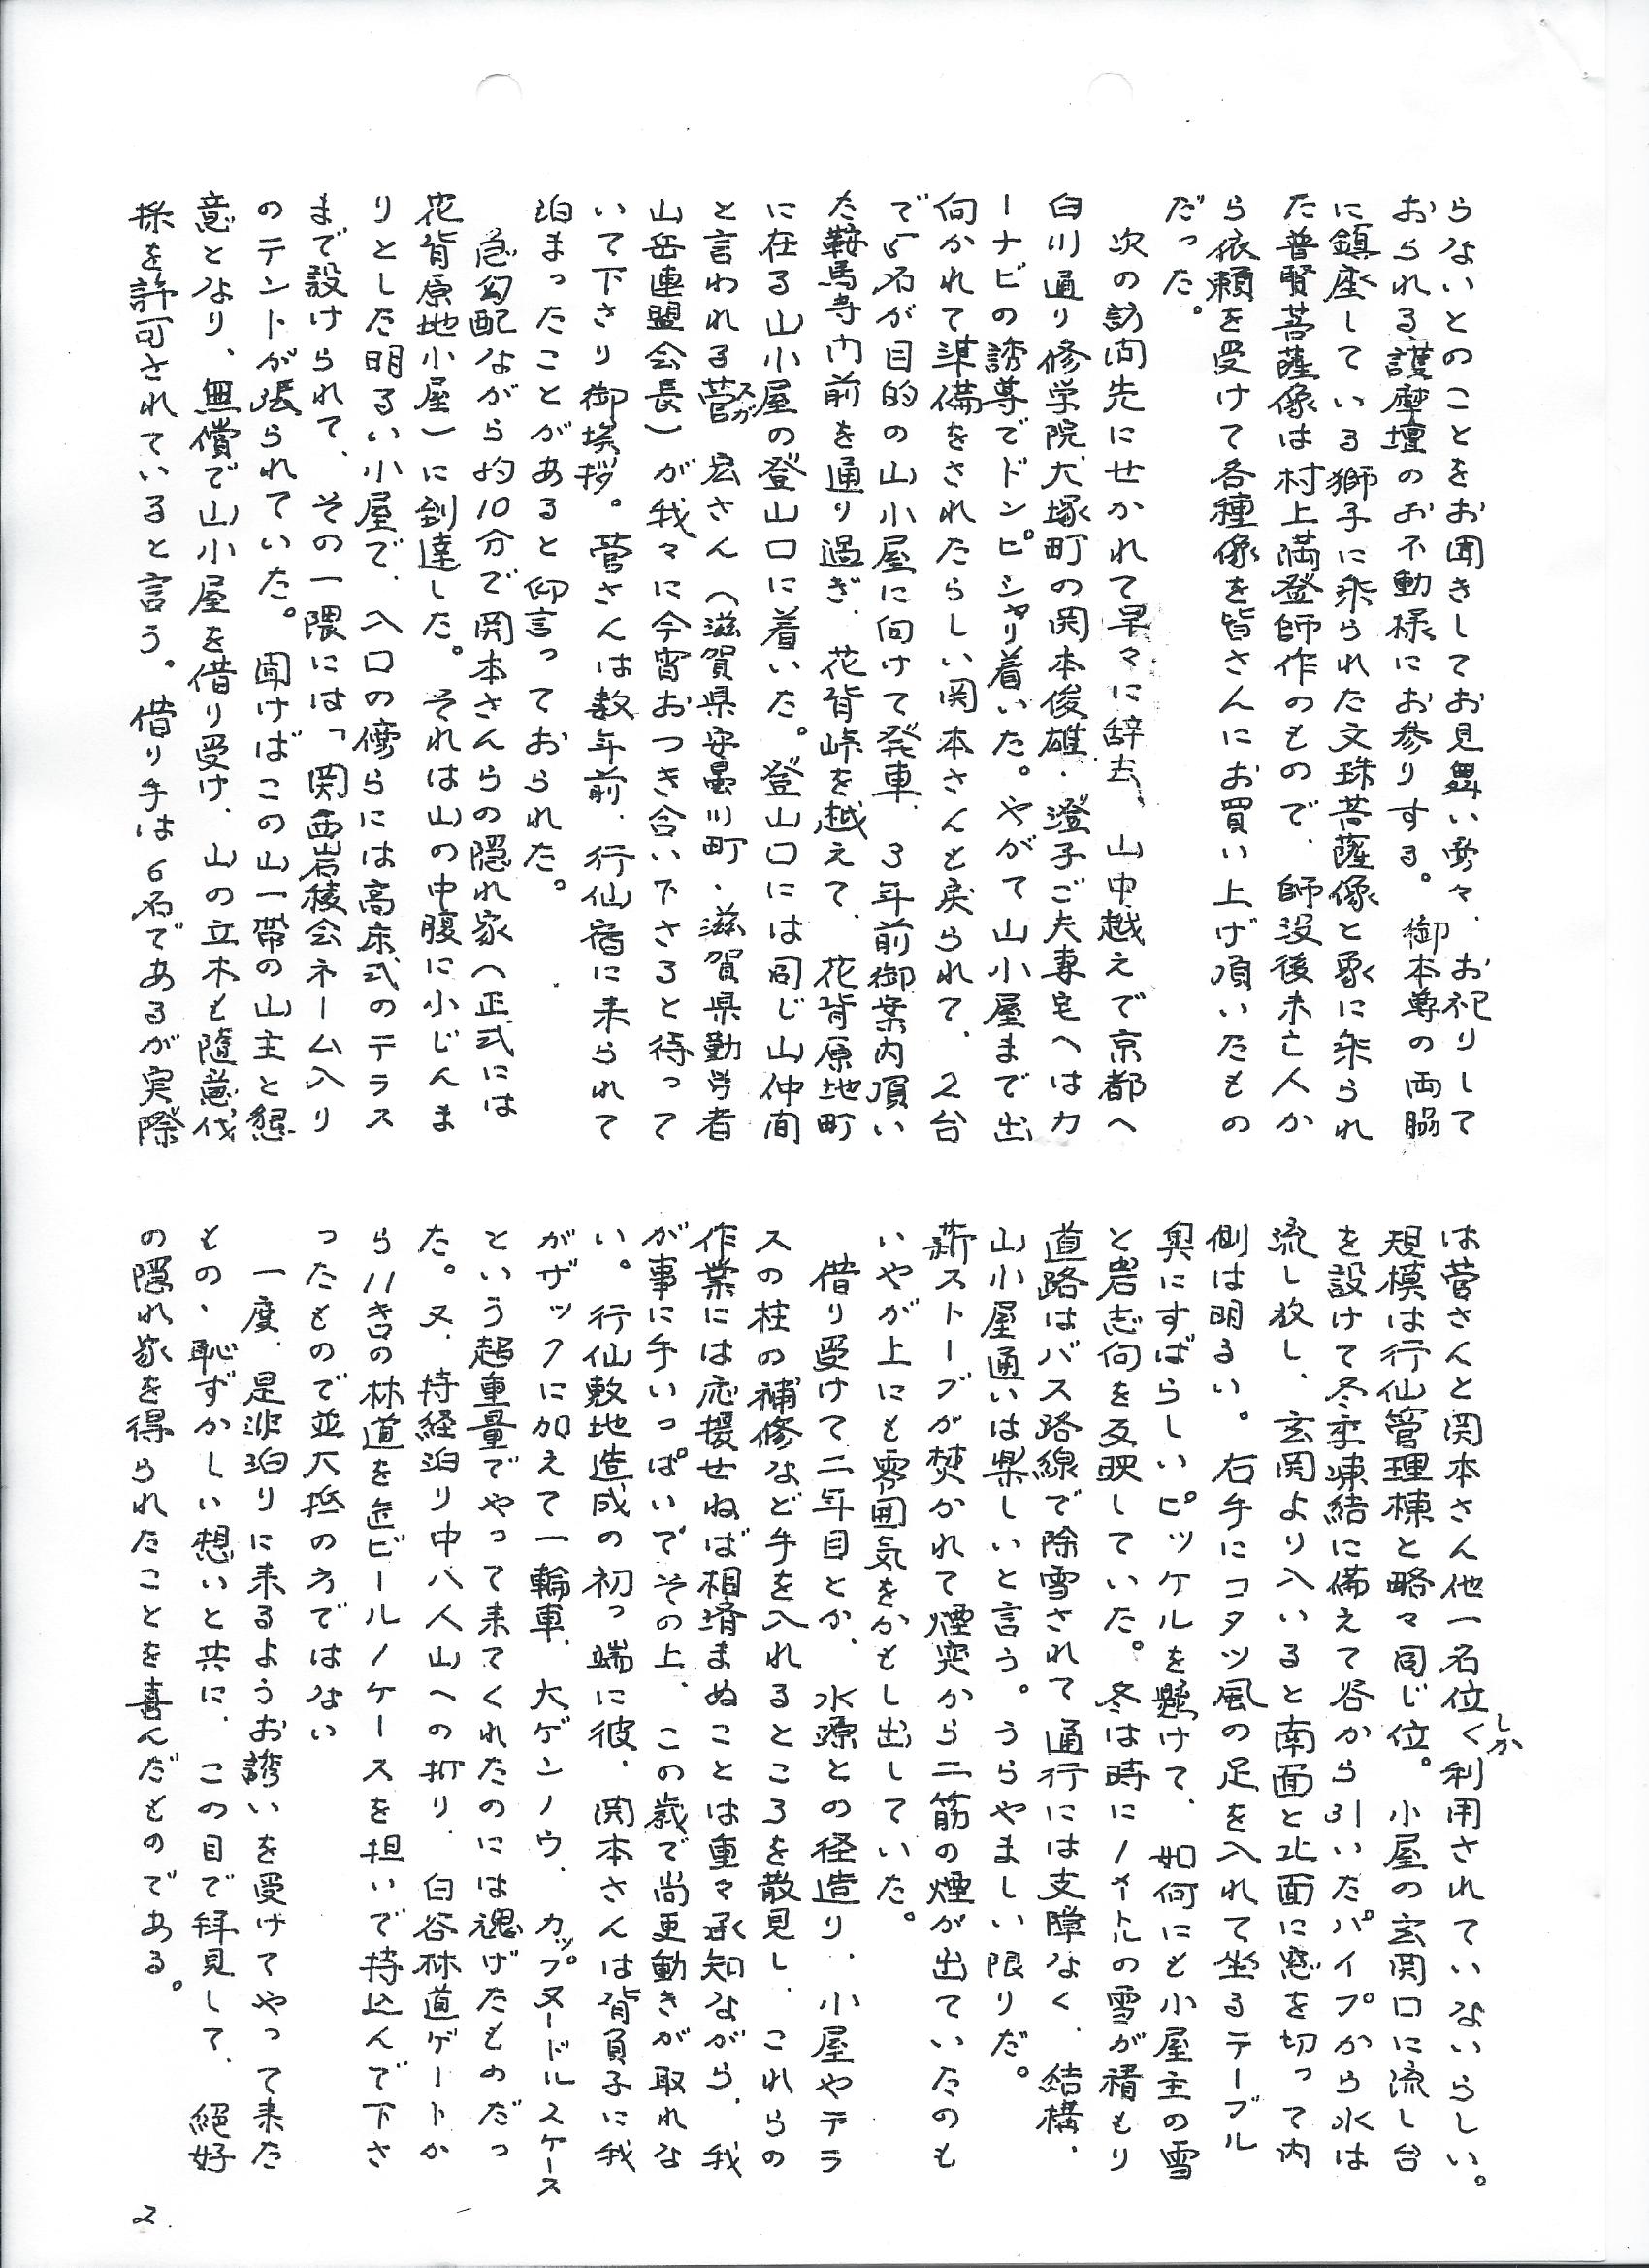 らないとのことをお聞きしてお見舞い旁々、お祀りして
おられる護摩壇のお不動様にお参りする。御本尊の両脇
に鎮座している獅子に乗られた文珠菩薩像と象に乗られ
た普賢菩薩像は村上満登師作のもので、師没後未亡人か
ら依頼を受けて各種像を皆さんにお買い上げ頂いたもの
だった。
次の訪問先にせかれて早々に辞去、山中越えで京都へ
白川通り修学院大塚町の関本俊雄・澄子ご夫妻宅へはカ
ーナビの誘導でドンピシャリ着いた。やがて山小屋まで出
向かれて準備をされたらしい関本さんと戻られて、2台
で名が目的の山小屋に向けて発車、3年前御案内頂い
た鞍馬寺門前を通り過ぎ、花背峠を越えて、花背原地町
に在る山小屋の登山口に着いた。登山口には同じ山仲間
と言われる菅スガ 宏さん(滋賀県安曇川町・滋賀県勤労者
山岳連盟会長)が我々に今宵おつき合い下さると待って
いて下さり御挨拶。菅さんは数年前、行仙宿に来られて
泊まったことがあると仰言っておられた。
急勾配ながら約10分で関本さんらの隠れ家へ正式には
花背原地小屋)に到達した。それは山の中腹に小じんま
りとした明るい小屋で、入口の傍らには高床式のテラス
まで設けられて、その一隈には「関西岩稜会ネーム入り
のテントが張られていた。聞けばこの山一帯の山主と懇
意となり、無償で山小屋を借り受け、山の立木も随意伐
採を許可されていると言う。借り手は6名であるが実際
は菅さんと関本さん他一名位くしか利用されていないらしい。
規模は行仙管理棟と略々同じ位。小屋の玄関口に流し台
を設けて冬季凍結に備えて谷から引いたパイプから水は
流し放し、玄関より入いると南面と北面に窓を切って内
側は明るい。右手にコタツ風の足を入れて坐るテーブル
奥にすばらしいピッケルを懸けて、如何にも小屋主の雪
と岩志向を反映していた。冬は時に1メートルの雪が積もり
道路はバス路線で除雪されて通行には支障なく、結構、
山小屋通いは楽しいと言う。うらやましい限りだ。
薪ストーブが焚かれて煙突から二筋の煙が出ていたのも
いやが上にも雰囲気をかもし出していた。
借り受けて二年目とか、水源との径造り、小屋やテラ
スの柱の補修など手を入れるところを散見し、これらの
作業には応援せねば相済まぬことは重々承知ながら、我
が事に手いっぱいでその上、この歳で尚更動きが取れな
い。行仙敷地造成の初っ端に彼、関本さんは背負子に我
がザックに加えて一輪車、大ゲンノウ、カップヌードル1ケース
という超重量でやって来てくれたのには魂げたものだっ
た。又、持経泊り中八人山への折り、白谷林道ゲートか
ら11キロの林道を缶ビール1ケースを担いで持込んで下さ
ったもので並大抵の方ではない
一度、是非泊りに来るようお誘いを受けてやって来た
もの、恥ずかしい想いと共に、この目で拝見して、絶好
の隠れ家を得られたことを喜んだものである。
2.